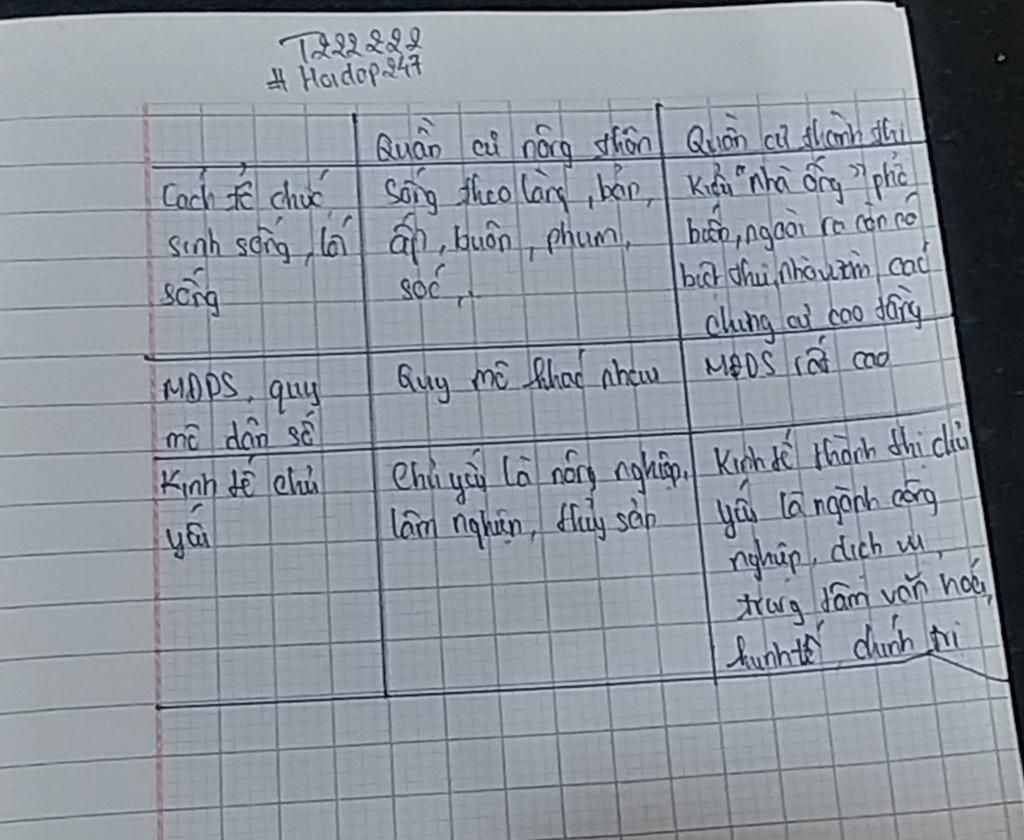 T222222
# Hoidap247
Quần cư nông thôn
Quần cư thành thị
Cách tổ chức
sinh sống, lối
sống
Sống theo làng, bản,
ấp, buôn, phum,
sóc,..
Kiểu "nhà ống" phổ
biến, ngoài ra còn có
biệt thự, nhà vườn các
chung cư cao tầng
MĐDS, quy
mô dân số
Quy mô khác nhau
MĐDS rất cao
Kinh tế chủ
yếu
Chủ yếu là nông nghiệp,
lâm nghiệp, thủy sản
Kinh tế thành thị chủ
yếu là ngành công
nghiệp, dịch vụ,
trung tâm văn hoá,
kinh tế, chính trị